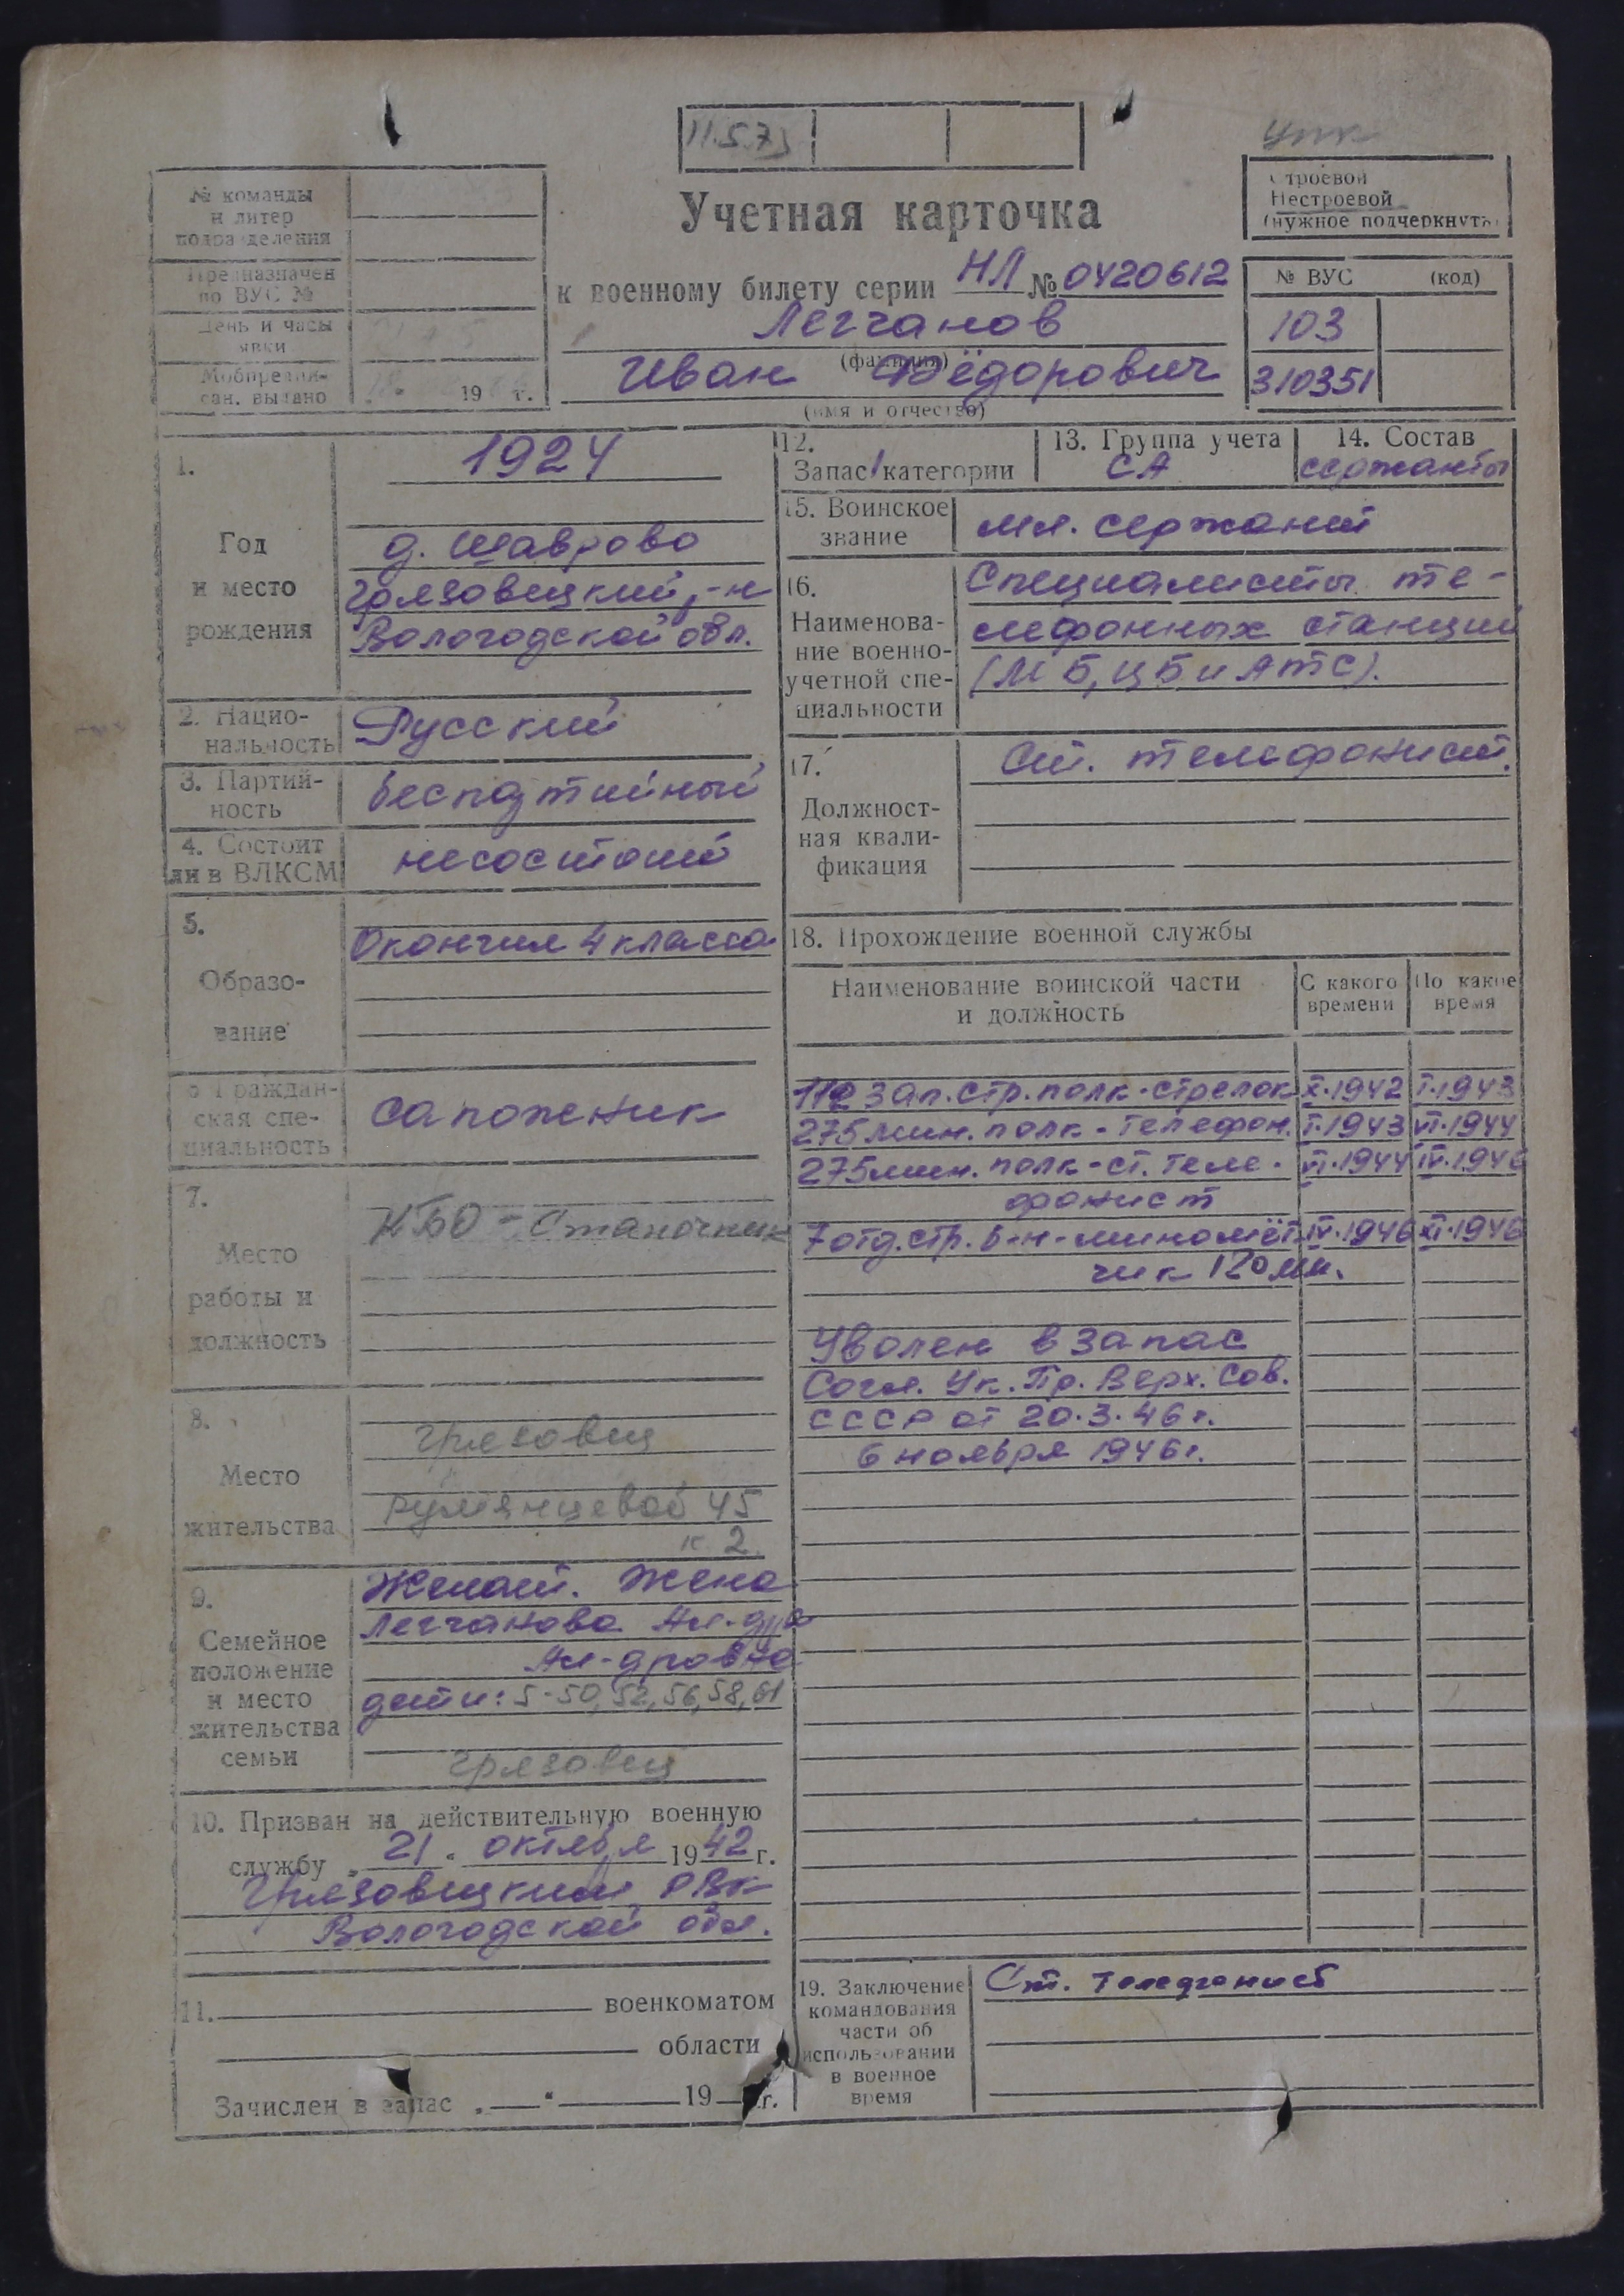 11.5.73
упк
№ команды
и литер
подразделения
Предназначен
по ВУС №
День и часы
явки
Мобпредпи-
сан. выдано 19 г.
Учетная карточка
к военному билету серии НЛ № 0420612
Легчанов
(фамилия)
Иван Фёдорович
(имя и отчество)
Строевой
Нестроевой
(нужное подчеркнуть)
№ ВУС (код)
103
310351
1.
Год
и место
рождения
1924
д. Шаврово
Грязовецкий р-н
Вологодской обл.
2. Нацио-
нальность
Русский
3. Партий-
ность
беспартийный
4. Состоит
ли в ВЛКСМ
несостоит
5.
Образо-
вание
Окончил 4 класса
6 Граждан-
ская спе-
циальность
сапожник
7.
Место
работы и
должность
КБО - Станочник
8.
Место
жительства
Грязовец
Румянцевой 45
к 2
9.
Семейное
положение
и место
жительства
семьи
Женат. Жена
Легчанова Ал-дра
Ал-дровна
дети: 5-50, 52, 56, 58, 61
Грязовец
10. Призван на действительную военную
службу „ 21 " октября 1942 г.
Грязовецким РВК
Вологодской обл.
11. военкоматом
области
Зачислен в запас „ " 19 г.
12.
Запас 1 категории
13. Группа учета
СА
14. Состав
сержанты
15. Воинское
звание
мл. сержант
16.
Наименова-
ние военно-
учетной спе-
циальности
Специалисты те-
лефонных станций
(МБ, ЦБ и АТС).
17.
Должност-
ная квали-
фикация
Ст. телефонист.
18. Прохождение военной службы
Наименование воинской части
и должность
С какого
времени
По какое
время
112 зап. стр. полк - стрелок X.1942 I.1943
275 мин. полк - телефон. I.1943 VI.1944
275 мин. полк - ст. теле- VI.1944 IV.1946
фонист
7 отд. стр. б-н - миномёт- IV.1946 XI.1946
чик 120 мм.
Уволен в запас
Согл. Ук. Пр. Верх. Сов.
СССР от 20.3.46 г.
6 ноября 1946 г.
19. Заключение
командования
части об
использовании
в военное
время
Ст. телефонист